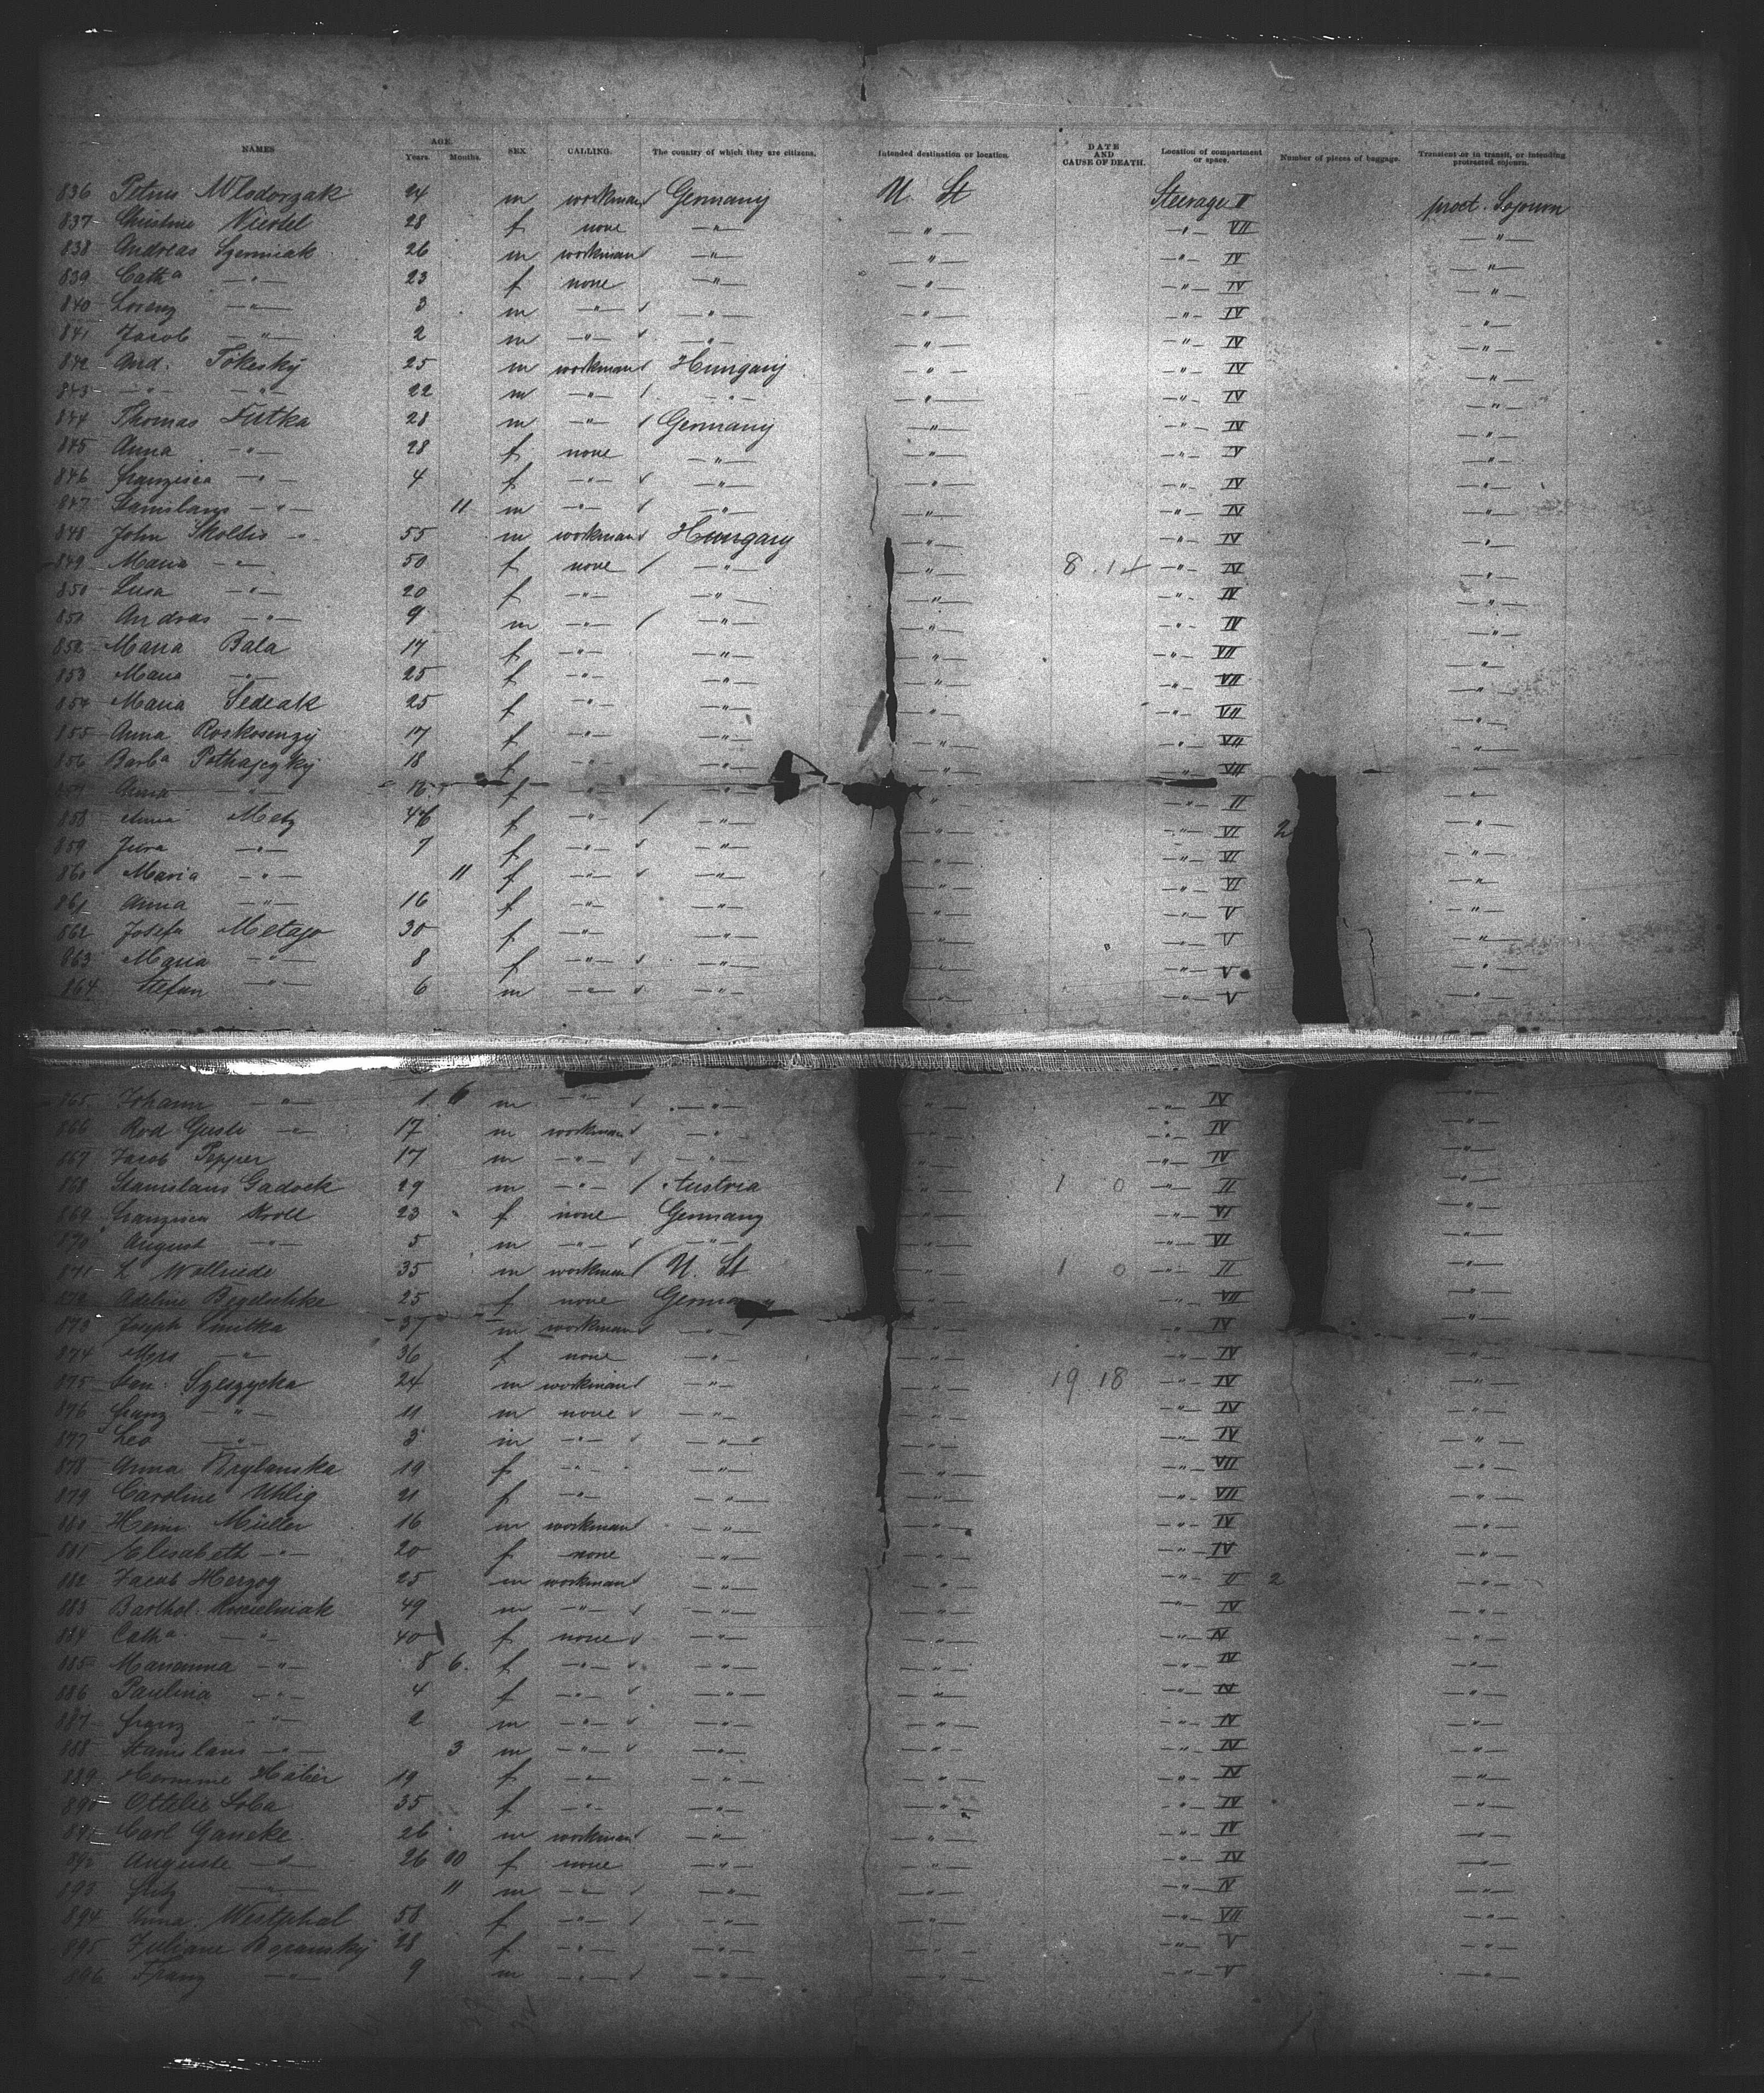 NAMES AGE. Years. Months. SEX. CALLING. The country of which they are citizens. Intended destination or location. DATE AND CAUSE OF DEATH. Location of compartment or space. Number of pieces of baggage. Transient or in transit, or intending protracted sojourn.
836 Petrus Wlodorzak 24 m workman Germany U. St Steerage II proct. Sojourn
837 Christine Viertel 28 f none —"— —"— —"— VII —"—
838 Andreas Szermiak 26 m workman —"— —"— —"— IV —"—
839 Catha —"— 23 f none —"— —"— —"— IV —"—
840 Lorenz —"— 3 m —"— —"— —"— —"— IV —"—
841 Jacob —"— 2 m —"— —"— —"— —"— IV —"—
842 And. Tokesky 25 m workman Hungary —"— —"— IV —"—
843 —"— —"— 22 m —"— —"— —"— —"— IV —"—
844 Thomas Dutka 28 m —"— Germany —"— —"— IV —"—
845 Anna —"— 28 f none —"— —"— —"— IV —"—
846 Franzisca —"— 4 f —"— —"— —"— —"— IV —"—
847 Stanislaus —"— 11 m —"— —"— —"— —"— IV —"—
848 John Skoltis 55 m workman Hungary —"— —"— IV —"—
849 Maria —"— 50 f none —"— —"— 8.14 —"— IV —"—
850 Lusa —"— 20 f —"— —"— —"— —"— IV —"—
851 Andras —"— 9 m —"— —"— —"— —"— IV —"—
852 Maria Bala 17 f —"— —"— —"— —"— VII —"—
853 Maria —"— 25 f —"— —"— —"— —"— VII —"—
854 Maria Sedeak 25 f —"— —"— —"— —"— VII —"—
855 Anna Roskosenzy 17 f —"— —"— —"— —"— VII —"—
856 Barba Pothajczky 18 f —"— —"— —"— —"— VII —"—
857 Anna —"— 16 f —"— —"— —"— —"— II —"—
858 Anna Metz 46 f —"— —"— —"— —"— VI 2 —"—
859 Jura —"— 7 f —"— —"— —"— —"— VI —"—
860 Maria —"— 11 f —"— —"— —"— —"— VI —"—
861 Anna —"— 16 f —"— —"— —"— —"— V —"—
862 Josefa Metajo 30 f —"— —"— —"— —"— V —"—
863 Maria —"— 8 f —"— —"— —"— —"— V —"—
864 Stefan —"— 6 m —"— —"— —"— —"— V —"—
865 Johann —"— 1 6 m —"— —"— —"— —"— IV —"—
866 Rod Gusti 17 m workman —"— —"— —"— IV —"—
867 Jacob Pepper 17 m —"— —"— —"— —"— IV —"—
868 Stanislaus Gadock 29 m —"— Austria —"— 1 0 —"— II —"—
869 Franzisca Kroll 23 f none Germany —"— VI —"—
870 August —"— 5 m —"— —"— —"— VI —"—
871 L Wollriede 35 m workman U. St 1 0 —"— II —"—
872 Adeline 25 f none Germany —"— VII —"—
873 Joseph Smitka 37 m workman —"— —"— —"— IV —"—
874 Mrs —"— 36 f none —"— —"— —"— IV —"—
875 Stan. Szeszycka 24 m workman —"— —"— 19 18 —"— IV —"—
876 Franz —"— 11 m none —"— —"— —"— IV —"—
877 Leo —"— 3 m —"— —"— —"— —"— IV —"—
878 Anna Brylanska 19 f —"— —"— —"— —"— VII —"—
879 Caroline Uhlig 21 f —"— —"— —"— —"— VII —"—
880 Heinr. Müller 16 m workman —"— —"— —"— IV —"—
881 Elisabeth —"— 20 f none —"— —"— —"— IV —"—
882 Jacob Herzog 25 m workman —"— —"— —"— II 2 —"—
883 Barthol. Kucielniak 49 m —"— —"— —"— —"— IV —"—
884 Catha —"— 40 f none —"— —"— —"— IV —"—
885 Marianna —"— 8 6 f —"— —"— —"— —"— IV —"—
886 Paulina —"— 4 f —"— —"— —"— —"— IV —"—
887 Franz —"— 2 m —"— —"— —"— —"— IV —"—
888 Stanislaus —"— 3 m —"— —"— —"— —"— IV —"—
889 Hermine Haber 19 f —"— —"— —"— —"— IV —"—
890 Ottelie Soba 35 f —"— —"— —"— —"— IV —"—
891 Carl Ganske 26 m workman —"— —"— —"— IV —"—
892 Auguste —"— 26 10 f none —"— —"— —"— IV —"—
893 Fritz —"— 11 m —"— —"— —"— —"— IV —"—
894 Anna Westphal 58 f —"— —"— —"— —"— VII —"—
895 Juliane Boransky 28 f —"— —"— —"— —"— V —"—
896 Franz —"— 9 m —"— —"— —"— —"— V —"—